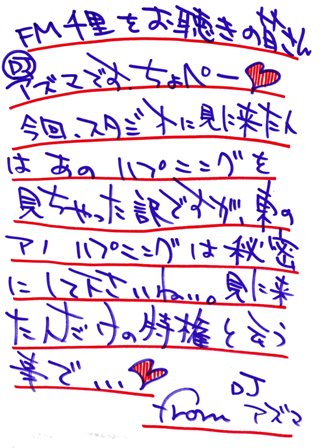 FM千里をお聴きの皆さん
DJアズマです。ちょペー♥
今回、スタジオに見に来たん
はあのハプニングを
見ちゃった訳ですが、東の
アノハプニングは秘密
にして下さいねぃ。見に来
たんだケの特権と云う
事で...♥
DJ
from アズマ